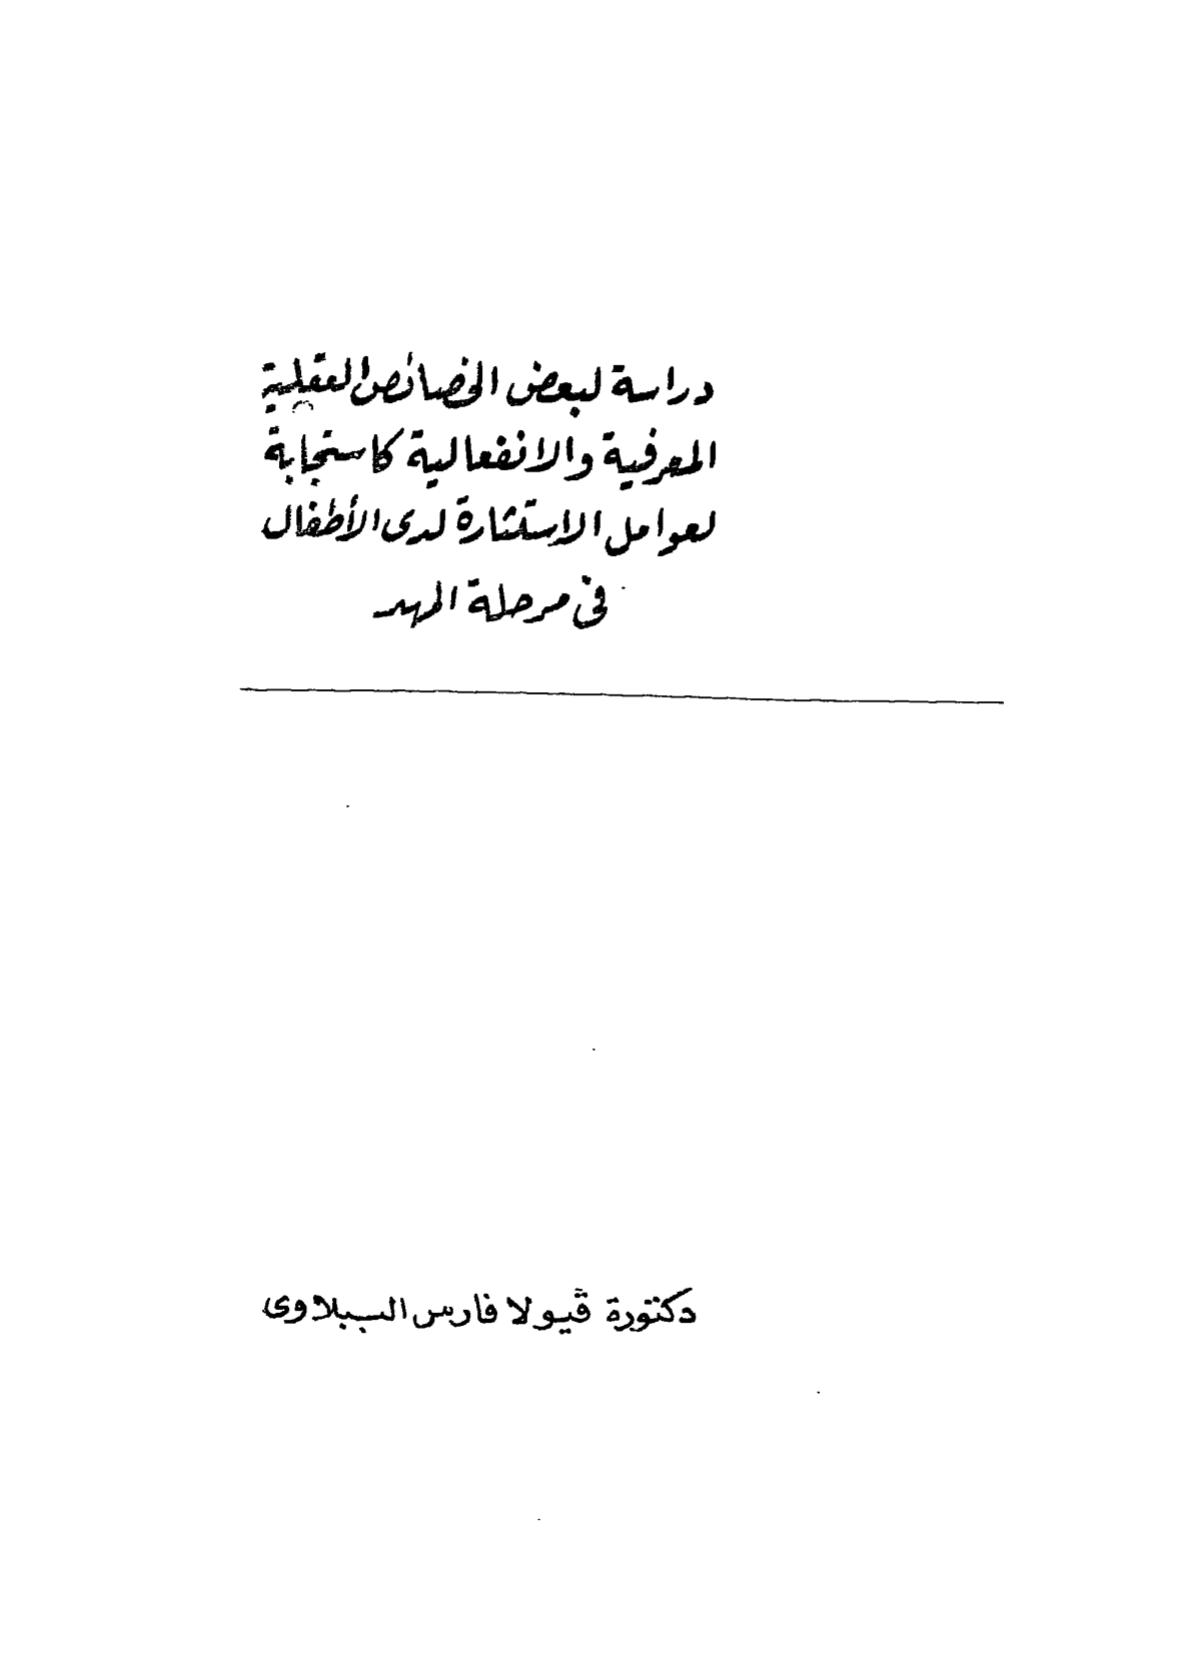 دراسة لبعض الخصائص العقلية
المعرفية والانفعالية كاستجابة
لعوامل الاستثارة لدى الأطفال
فى مرحلة المهد
دكتورة ڤيولا فارس الببلاوى